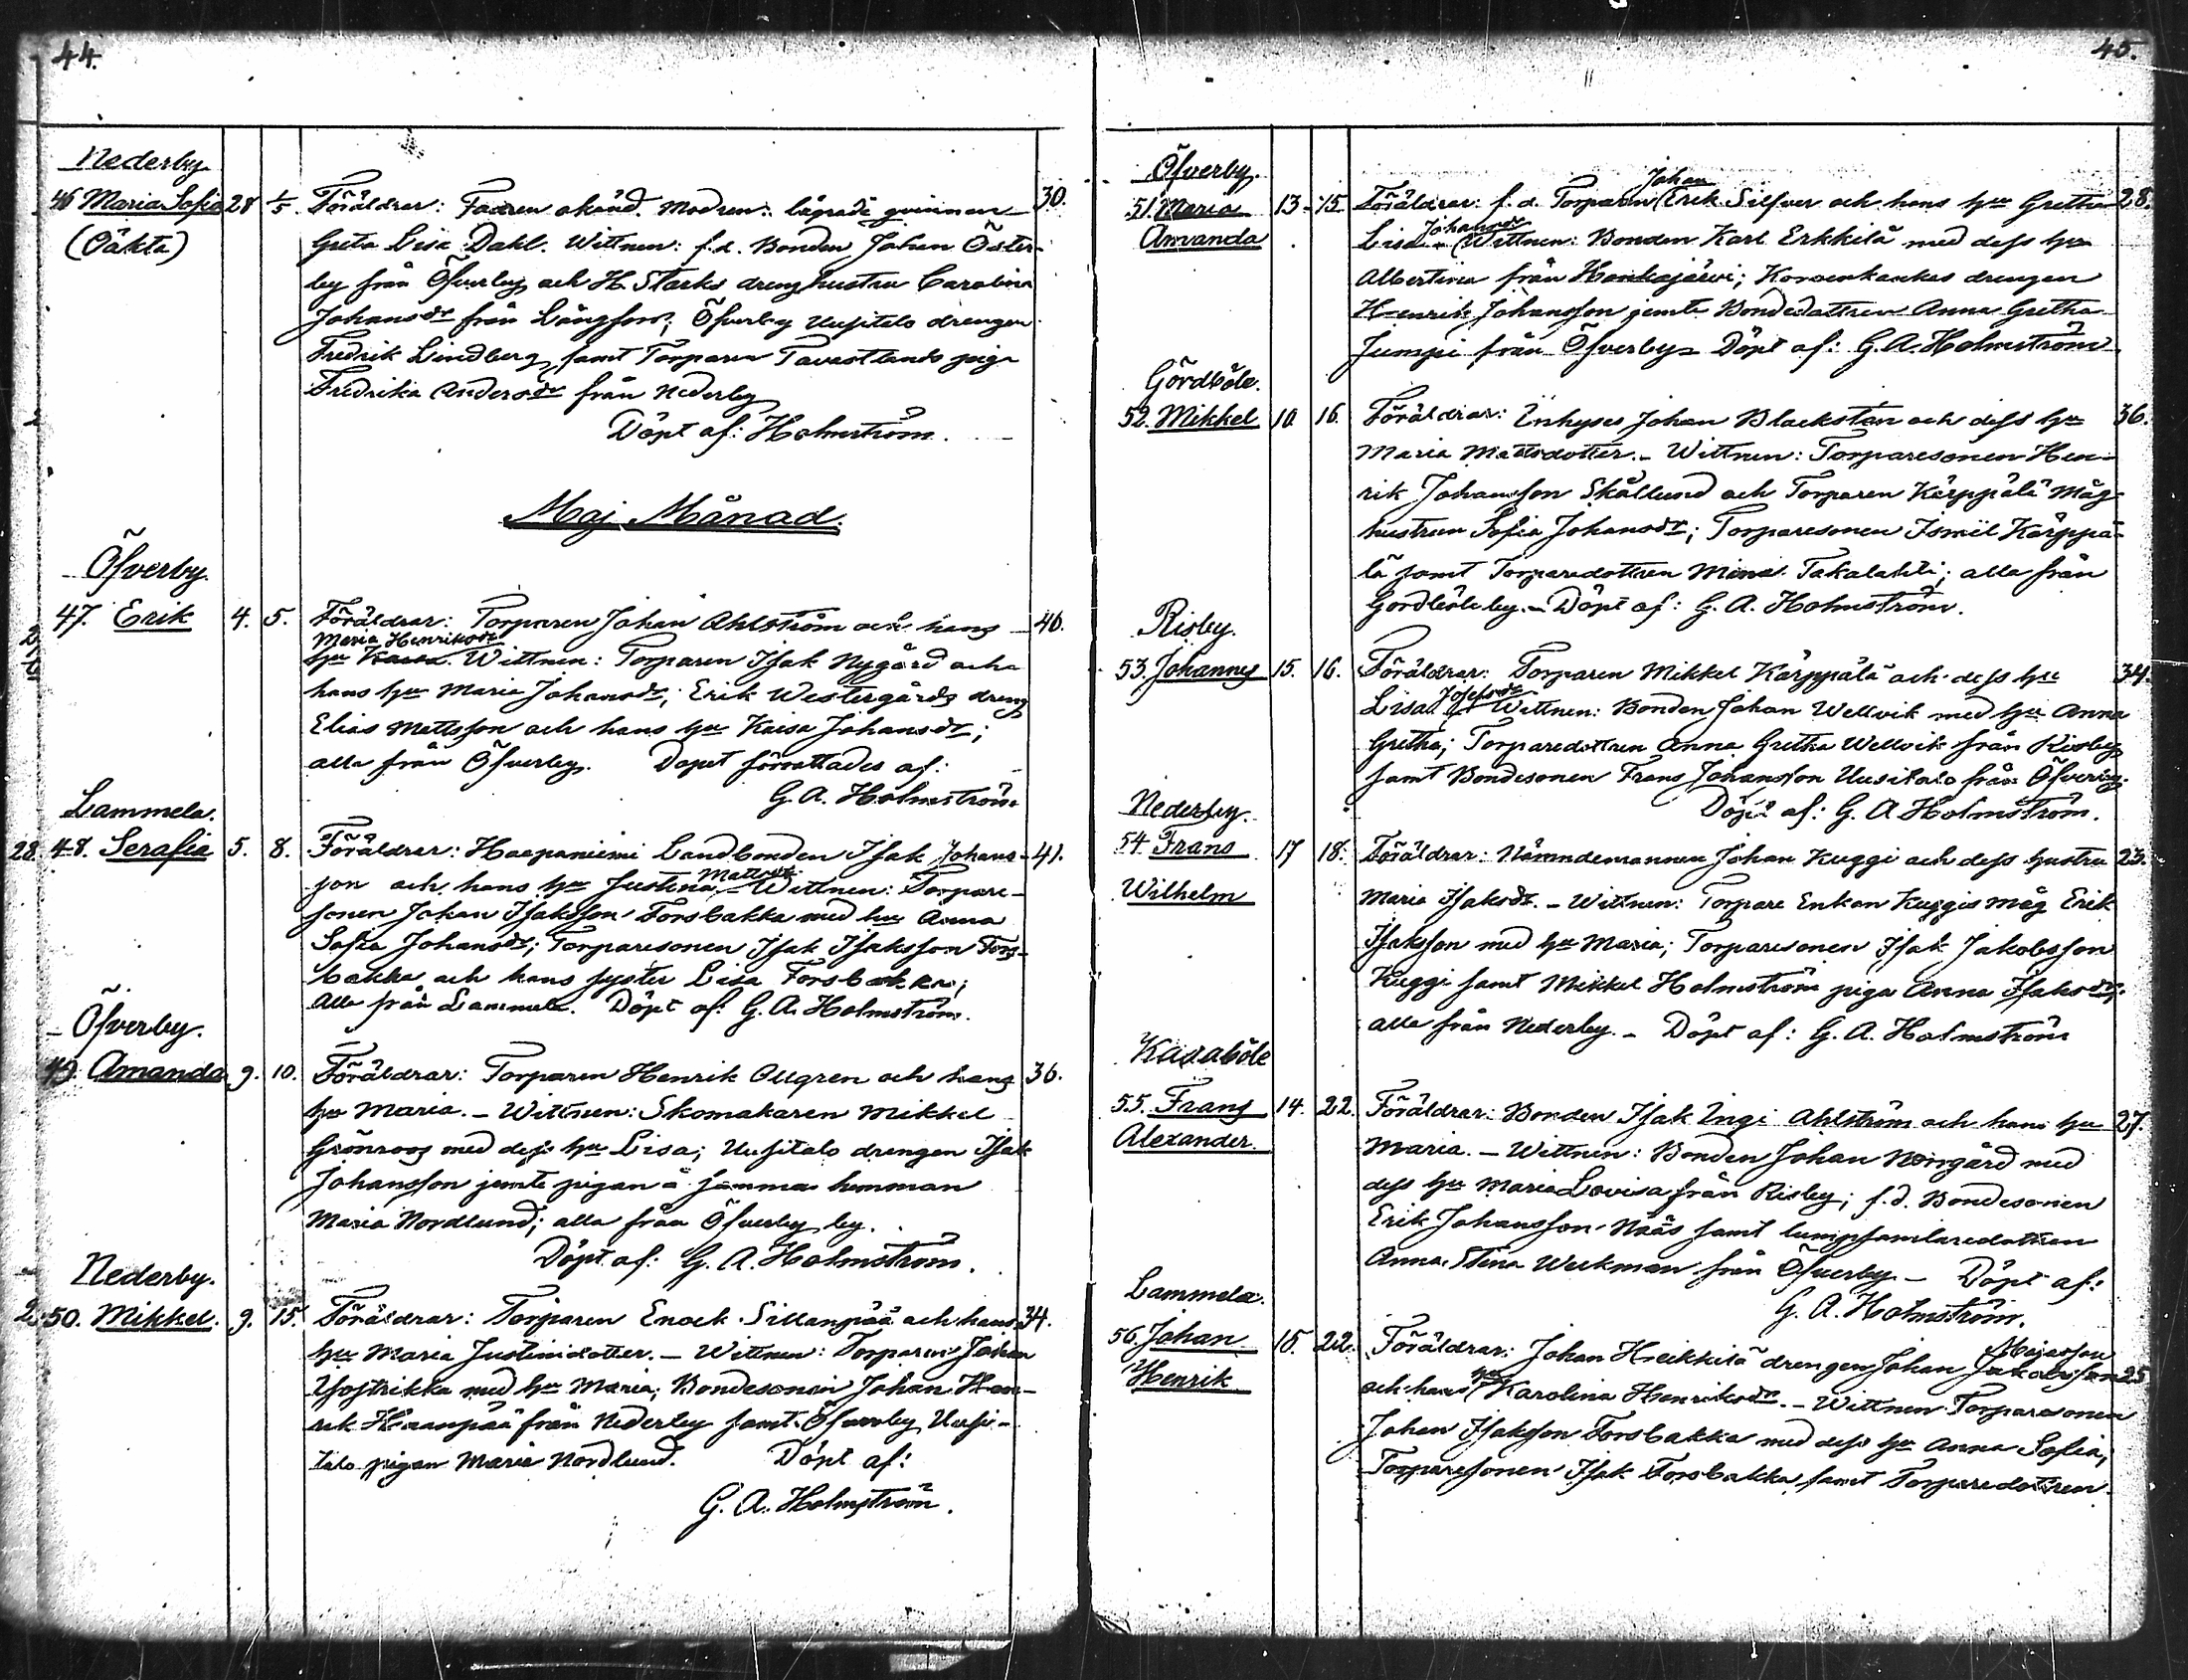 44.
Nederby.
46 Maria Sofia 28 1/5. Föräldrar: Fadren okänd. Modren: lägrade qvinnan 30.
(Oäkta) Greta Lisa Dahl. Wittnen: f.d. Bonden Johan Öster-
by från Öfverby och H. Starks dreng hustru Carolina
Johansdr från Långfors; Öfverby Uusitalo drengen
Fredrik Lindberg samt Torparen Tavastlands piga
Fredrika Andersdr från Nederby
Döpt af: Holmström.
Maj Månad.
Öfverby.
47. Erik 4. 5. Föräldrar: Torparen Johan Ahlström och hans 46.
Maria Henriksdr
hu Kaisa. Wittnen: Torparen Isak Nygård och
hans hu Maria Johansdr; Erik Westergårds dreng
Elias Mattsson och hans hu Kaisa Johansdr;
alla från Öfverby. Dopet förrättades af:
G. A. Holmström
Lammela.
28. 48. Serafia 5. 8. Föräldrar: Haapaniemi Landbonden Isak Johans- 41.
son och hans hu Justina Mattsdr. Wittnen: Torpare-
sonen Johan Isaksson Forsbakka med hu Anna
Sofia Johansdr; Torparesonen Isak Isaksson Fors-
bakka och hans syster Lisa Forsbakka;
alla från Lammela. Döpt af: G. A. Holmström.
Öfverby.
49. Amanda 9. 10. Föräldrar: Torparen Henrik Ollgren och hans 36.
hu Maria. - Wittnen: Skomakaren Mikkel
Grönroos med dess hu Lisa; Uusitalo drengen Isak
Johansson jemte pigan å samma hemman
Maria Nordlund; alla från Öfverby by.
Döpt af: G. A. Holmström.
Nederby.
50. Mikkel. 9. 15. Föräldrar: Torparen Enock Sillanpää och hans 34.
hu Maria Justinidotter. - Wittnen: Torparen Johan
Yojtrikka med hu Maria; Bondesonen Johan Hen-
rik Haanpää från Nederby samt Öfverby Uusi-
talo pigan Maria Nordlund. Döpt af:
G. A. Holmström.
45.
Öfverby.
51. Maria 13 15 Föräldrar: f.d. Torparen Johan (Erik Silfver och hans hu Gretha 28.
Amanda Lisa Johansdr (Wittnen: Bonden Karl Erkkilä med dess hu
Albertina från Honkajärvi; Korvenkaskas drengen
Henrik Johansson jemte Bondedottren Anna Gretha
Jumpi från Öfverby - Döpt af: G. A. Holmström
Gördböle.
52. Mikkel 10 16. Föräldrar: Inhyses Johan Blackstén och dess hu 36.
Maria Mattsdotter. - Wittnen: Torparesonen Hen-
rik Johansson Skållund och Torparen Kärppälä måg-
hustrun Sofia Johansdr; Torparesonen Ismël Kärppä-
lä samt Torparedottren Mina Takalahti; alla från
Gördböle by. - Döpt af: G. A. Holmström.
Risby.
53. Johannes 15. 16. Föräldrar: Torparen Mikkel Kärppälä och dess hu 34.
Lisa Josefsdr Wittnen: Bonden Johan Wellvik med hu Anna
Gretha; Torparedottren Anna Gretha Wellvik från Risby
samt Bondesonen Frans Johansson Uusitalo från Öfverby.
Döpt af: G. A. Holmström.
Nederby.
54. Frans 17 18. Föräldrar: Nämndemannen Johan Kuggi och dess hustru 23.
Wilhelm Maria Isaksdr. - Wittnen: Torpare Enkan Kuggis måg Erik
Isaksson med hu Maria; Torparesonen Isak Jakobsson
Kuggi samt Mikkel Holmström piga Anna Isaksdr;
alla från Nederby. - Döpt af: G. A. Holmström
Kasaböle
55. Frans 14. 22. Föräldrar: Bonden Isak Ingi Ahlström och hans hu 27.
Alexander. Maria. - Wittnen: Bonden Johan Norrgård med
dess hu Maria Lovisa från Risby; f.d. Bondesonen
Erik Johansson Nääs samt lumpsamlaredottren
Anna Stina Weckman från Öfverby - Döpt af:
G. A. Holmström.
Lammela.
56. Johan 15. 22. Föräldrar: Johan Heikkilä drengen Johan Jakobsson 25
Henrik och hans hu Karolina Henriksdr. - Wittnen Torparesonen
Johan Isaksson Forsbakka med dess hu Anna Sofia,
Torparesonen Isak Forsbakka samt Torparedottren